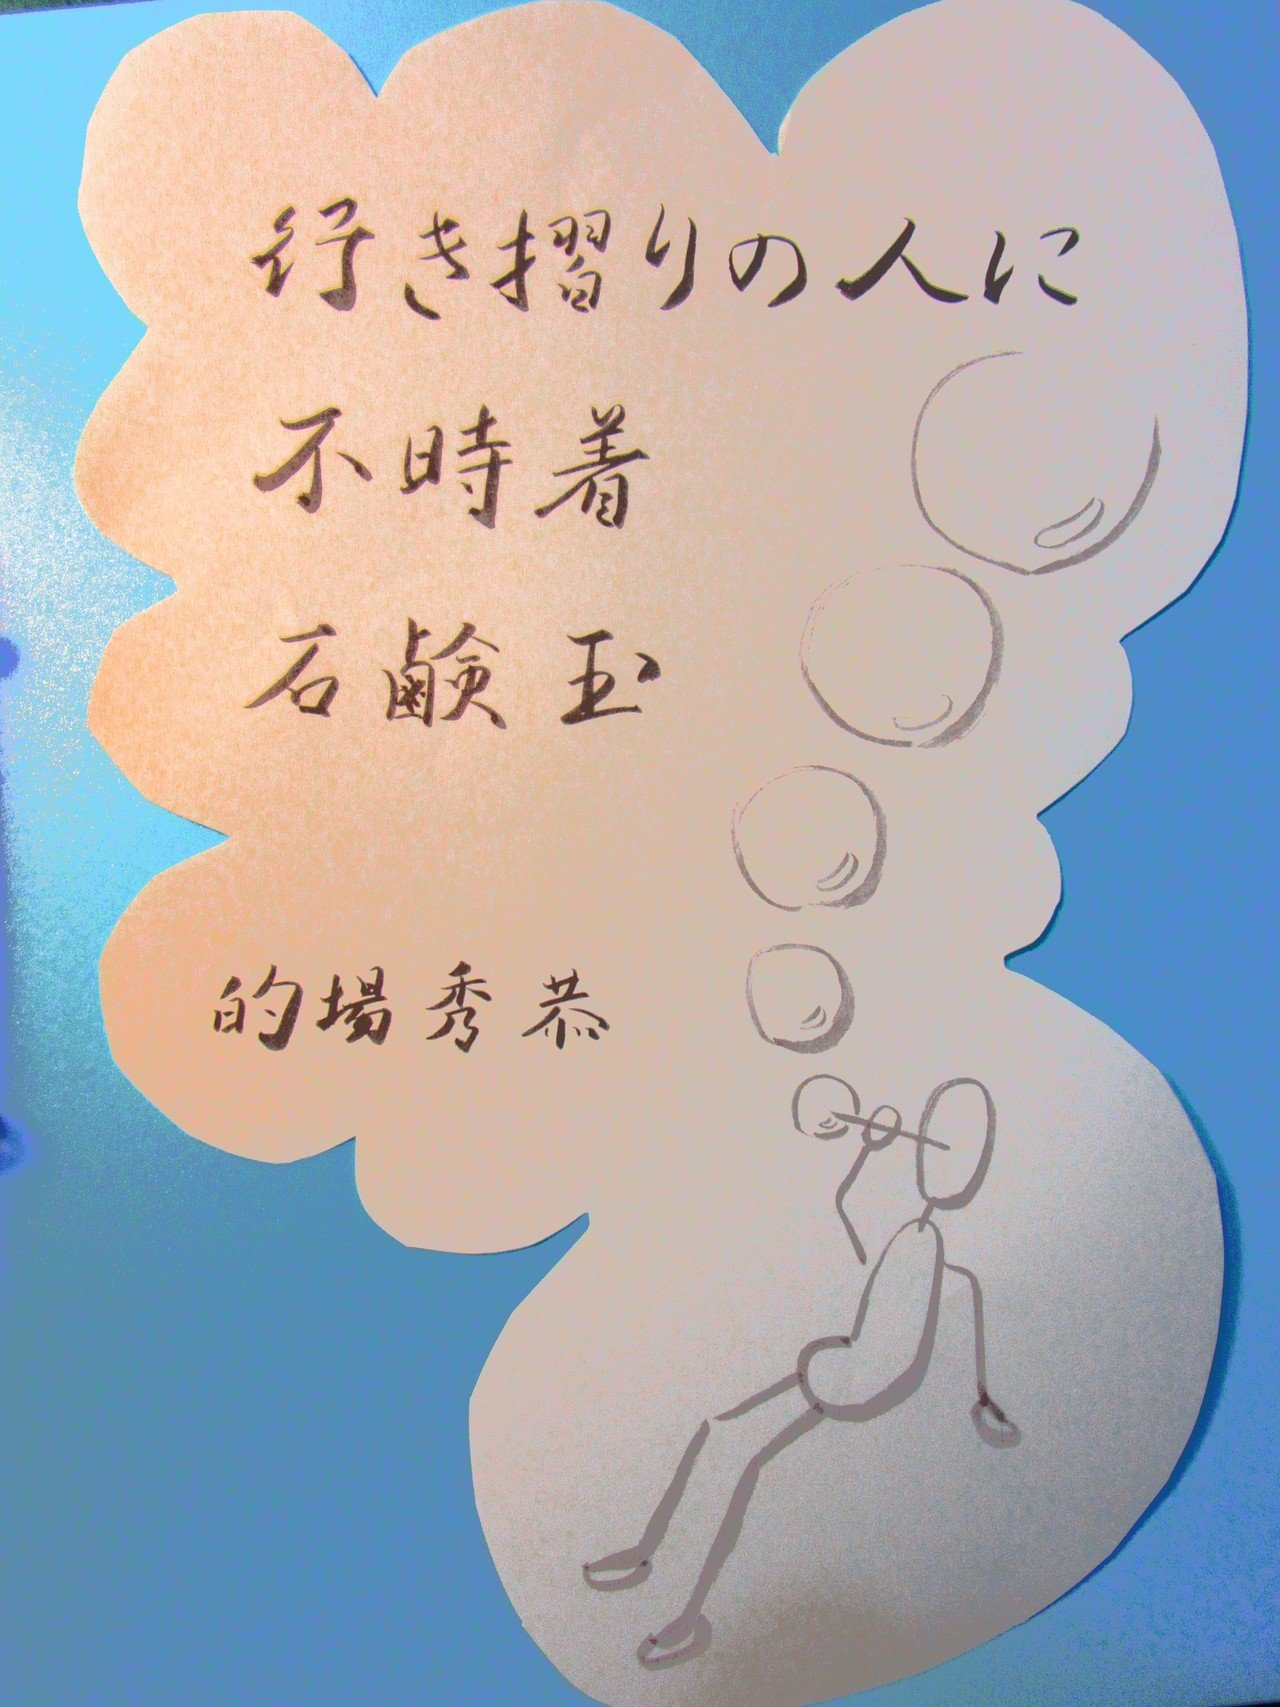 行き摺りの人に
不時着
石鹸玉
的場秀恭